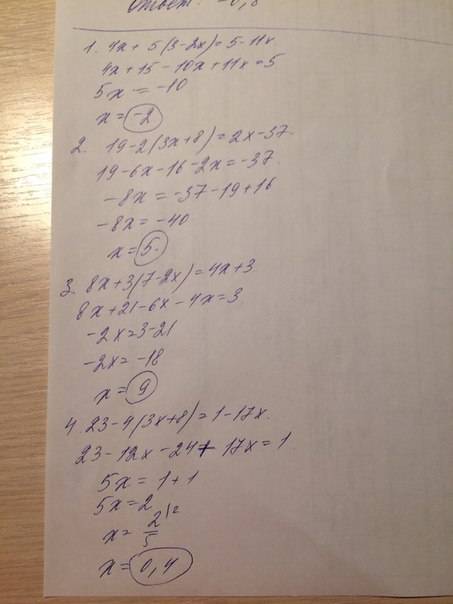 Ответ: -0,8
1. 4x + 5(3-2x)=5-11x
4x+15-10x+11x=5
5x = -10
x = -2
2. 19-2(3x+8)=2x-37
19-6x-16-2x=-37
-8x=-37-19+16
-8x=-40
x=5.
3. 8x+3(7-2x)=4x+3
8x+21-6x-4x=3
-2x=3-21
-2x=-18
x=9
4. 23-4(3x+8)=1-17x.
23-12x-24+17x=1
5x=1+1
5x=2
x= 2/5 |2
x=0,4